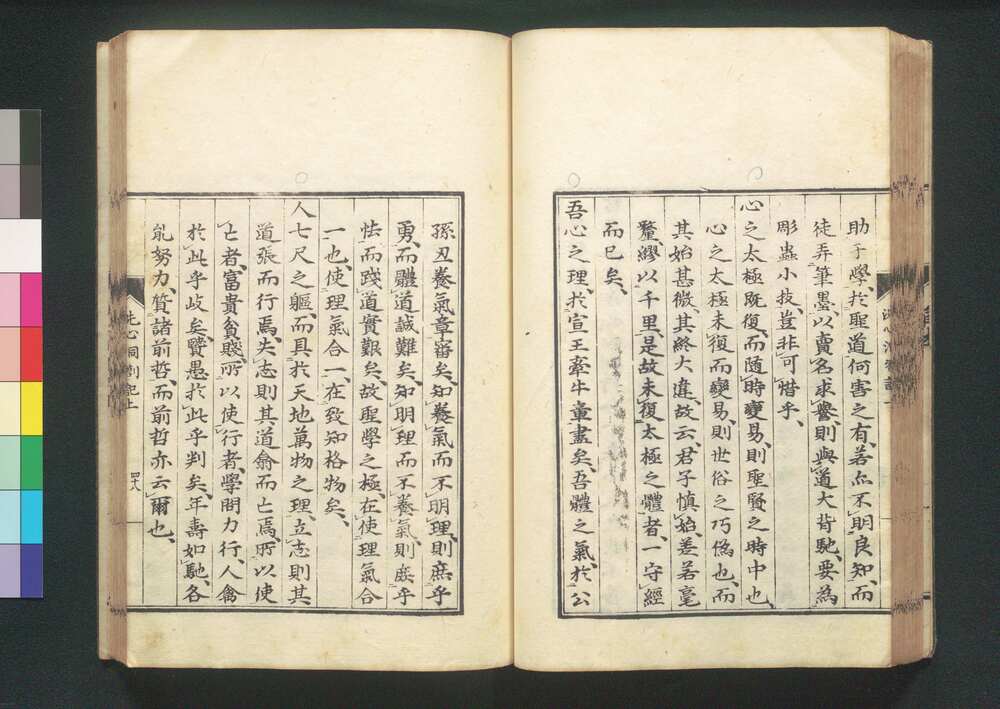 助于學、於聖道何害之有、若亦不明良知、而
徒弄筆墨、以賣名求譽、則與道大背馳、要為
彫蟲小技、豈非可惜乎、
心之太極既復、而隨時變易、則聖賢之時中也、
心之太極未復而變易、則世俗之巧偽也、而
其始甚微、其終大違、故云、君子慎始、差若毫
釐、繆以千里、是故未復太極之體者、一守經
而已矣、
吾心之理、於宣王牽牛章盡矣、吾體之氣、於公
孫丑養氣章審矣、知養氣而不明理、則庶乎
勇、而體道誠難矣、知明理而不養氣、則庶乎
怯、而踐道實艱矣、故聖學之極、在使理氣合
一也、使理氣合一、在致知格物矣、
人七尺之軀、而具於天地萬物之理、立志則其
道張而行焉、失志則其道翕而亡焉、所以使
亡者、富貴貧賤、所以使行者、學問力行、人禽
於此乎岐矣、賢愚於此乎判矣、年壽如馳、各
能努力、質諸前哲、而前哲亦云爾也、
洗心洞劄記上
四八